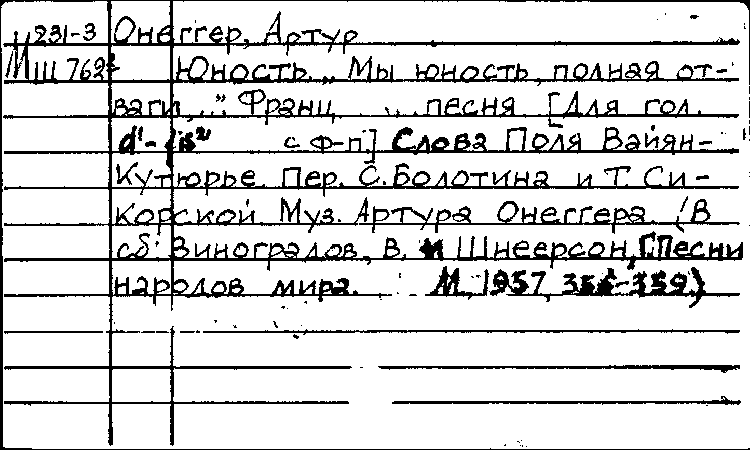 М 231-3 Онеггер, Артур
Ш 762 Юность. „Мы юность, полная от-
ваги,..." Франц. песня [Для гол.
с ф-п] Слова Поля Вайян-
Кутюрье. Пер. С. Болотина и Т. Си-
корской Муз. Артура Онеггера. (В
сб: Виноградов, В. и Шнеерсон, Г. Песни
народов мира. М., 1957,